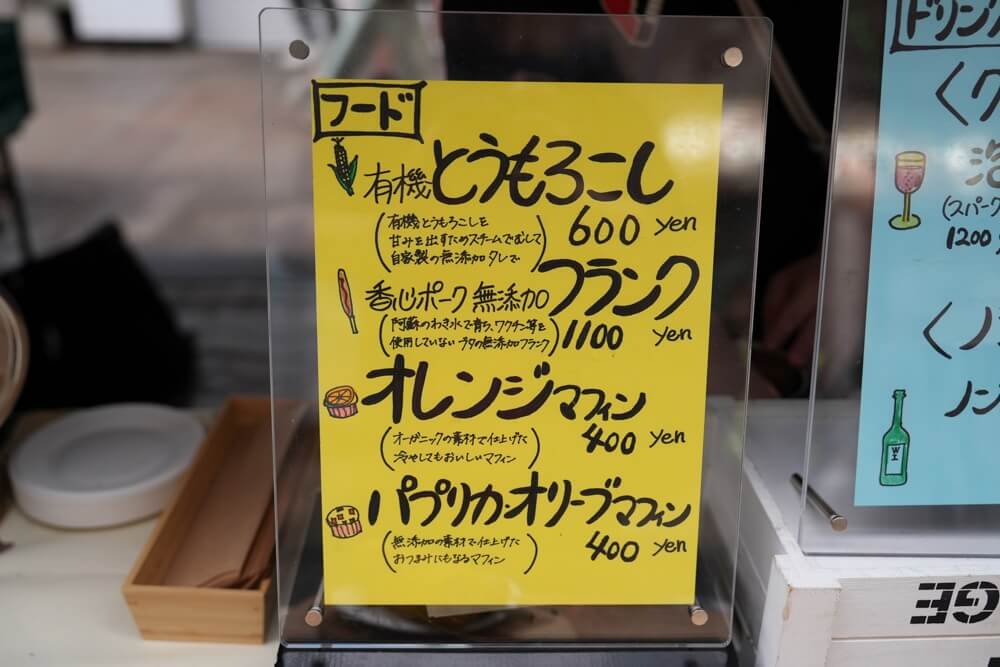 フード
有機とうもろこし
(有機とうもろこしを
甘みを出すためスチームでむして
自家製の無添加タレで)
600 yen
香心ポーク 無添加フランク
(阿蘇のわき水で育ち、ワクチン等を
使用していないブタの無添加フランク)
1100 yen
オレンジマフィン
(オーガニックの素材で仕上げた
冷やしてもおいしいマフィン)
400 yen
パプリカ・オリーブマフィン
(無添加の素材で仕上げた
おつまみにもなるマフィン)
400 yen
ドリン
泡
(スパーク
1200
ノン
GE